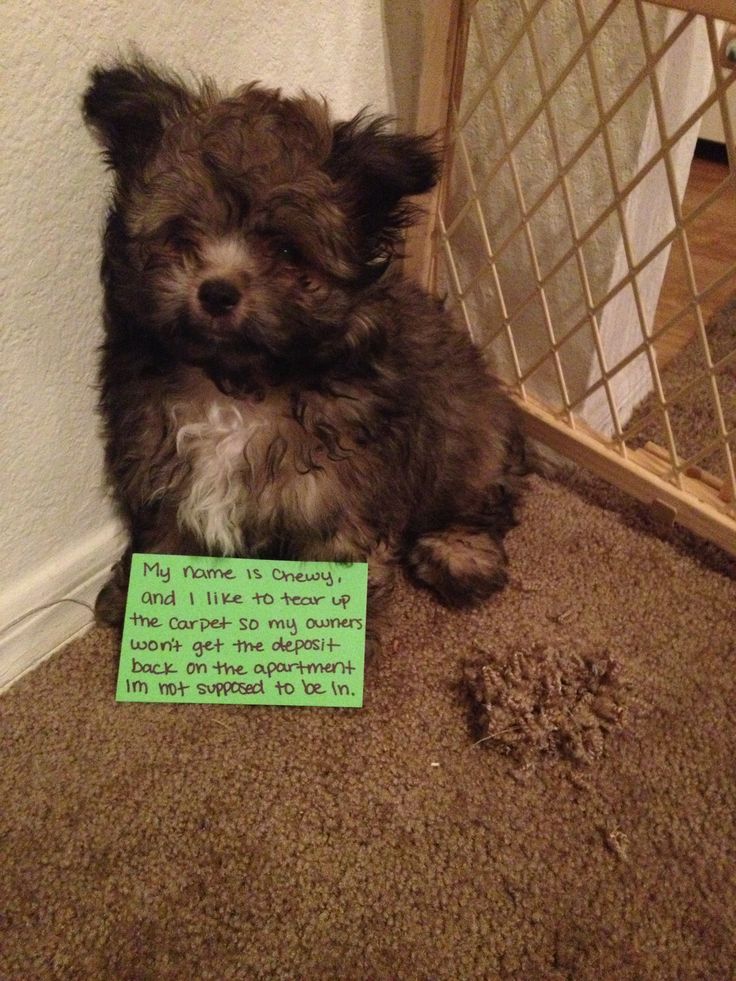 My name is Chewy,
and I like to tear up
the carpet so my owners
won't get the deposit
back on the apartment
Im not supposed to be in.